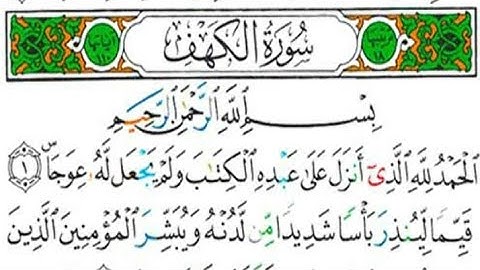 سُورَةُ الْكَهْفِ
بِسْمِ اللَّهِ الرَّحْمَٰنِ الرَّحِيمِ
الْحَمْدُ لِلَّهِ الَّذِىٓ أَنزَلَ عَلَىٰ عَبْدِهِ الْكِتَابَ وَلَمْ يَجْعَل لَّهُۥ عِوَجَاۜ ١
قَيِّمًا لِّيُنذِرَ بَأْسًا شَدِيدًا مِّن لَّدُنْهُ وَيُبَشِّرَ الْمُؤْمِنِينَ الَّذِينَ